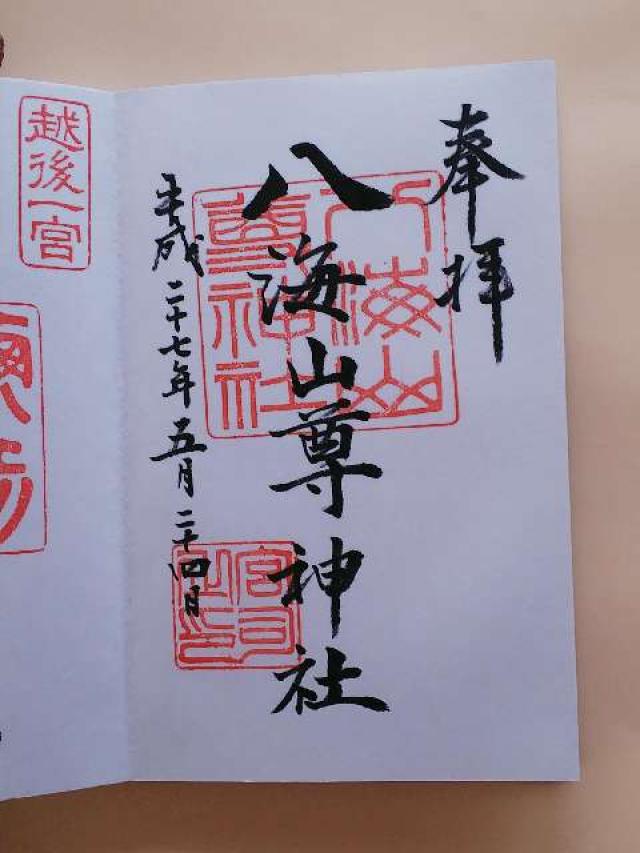 奉拝
八海山尊神社
平成二十七年五月二十四日
八海山
尊神社
宮司
之印
越後一宮